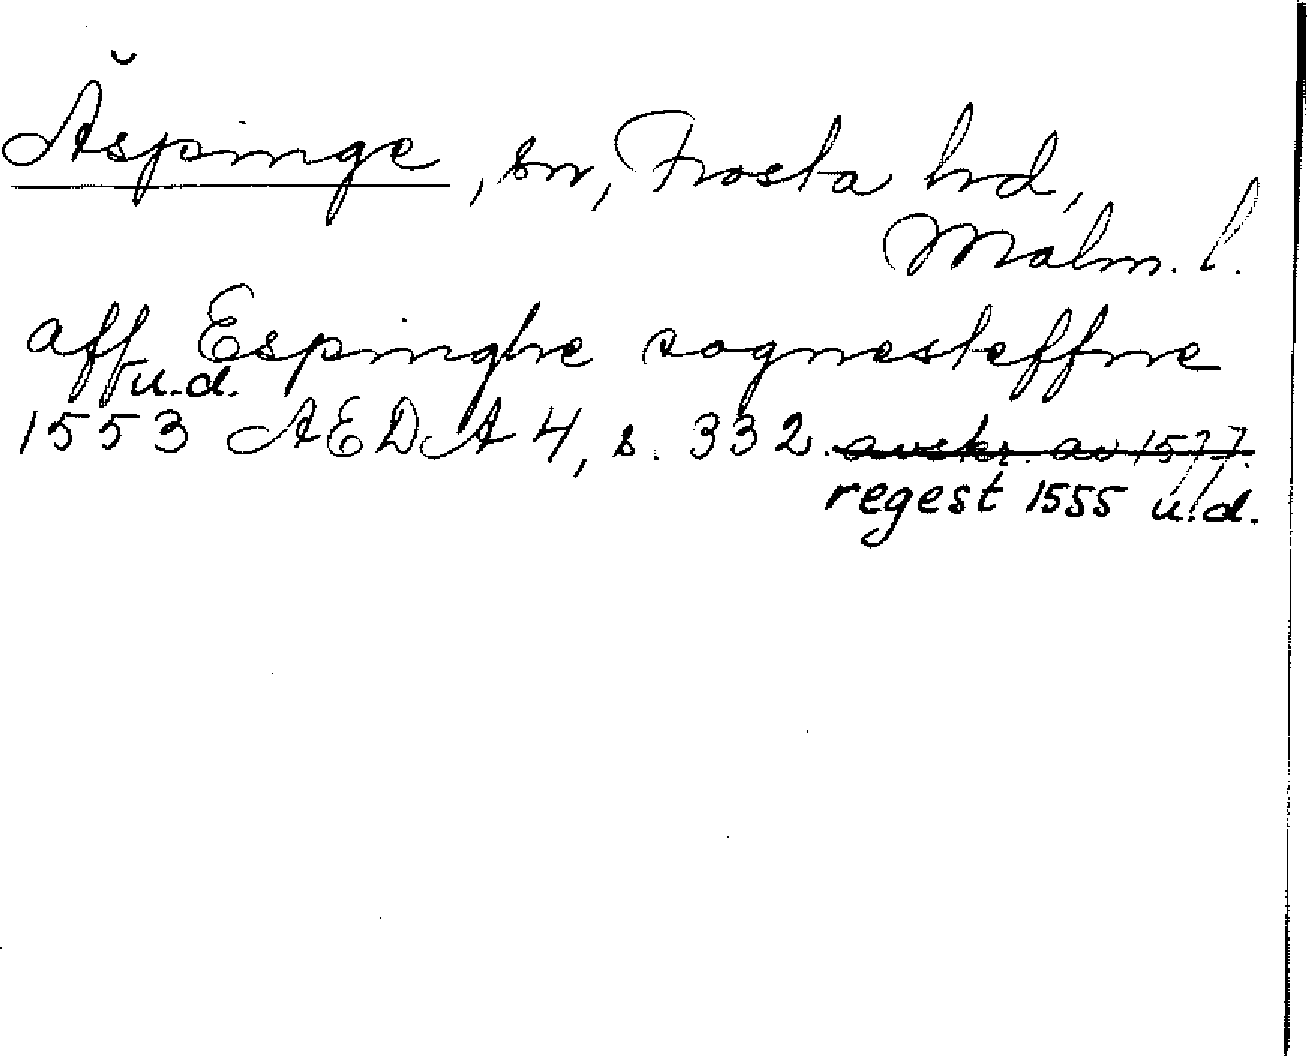 Äspinge, sn, Frosta hrd,
Malm. l.
aff Espinghe sognesteffne
u.d.
1553 AEDA 4, s. 332. avskr. av 1577.
regest 1555 u.d.